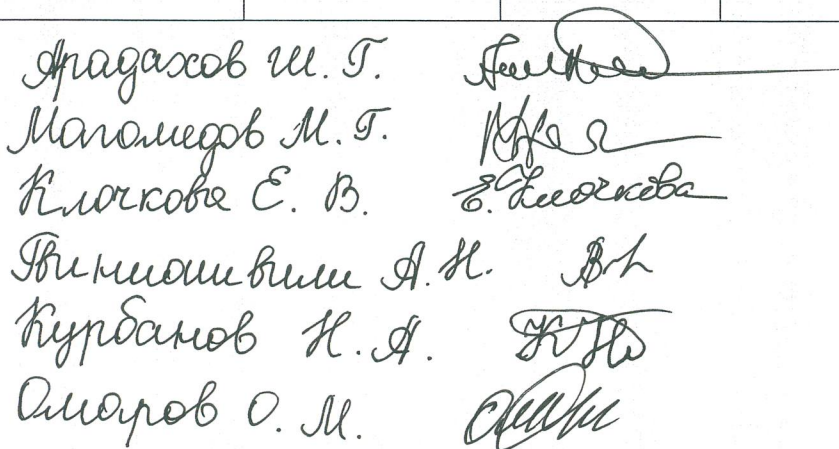 Арадахов Ш. Г.
Магомедов М. Г.
Клочкова Е. В. Е. Клочкова
Гвиниашвили А. Н.
Курбанов Н. А.
Омаров О. М.